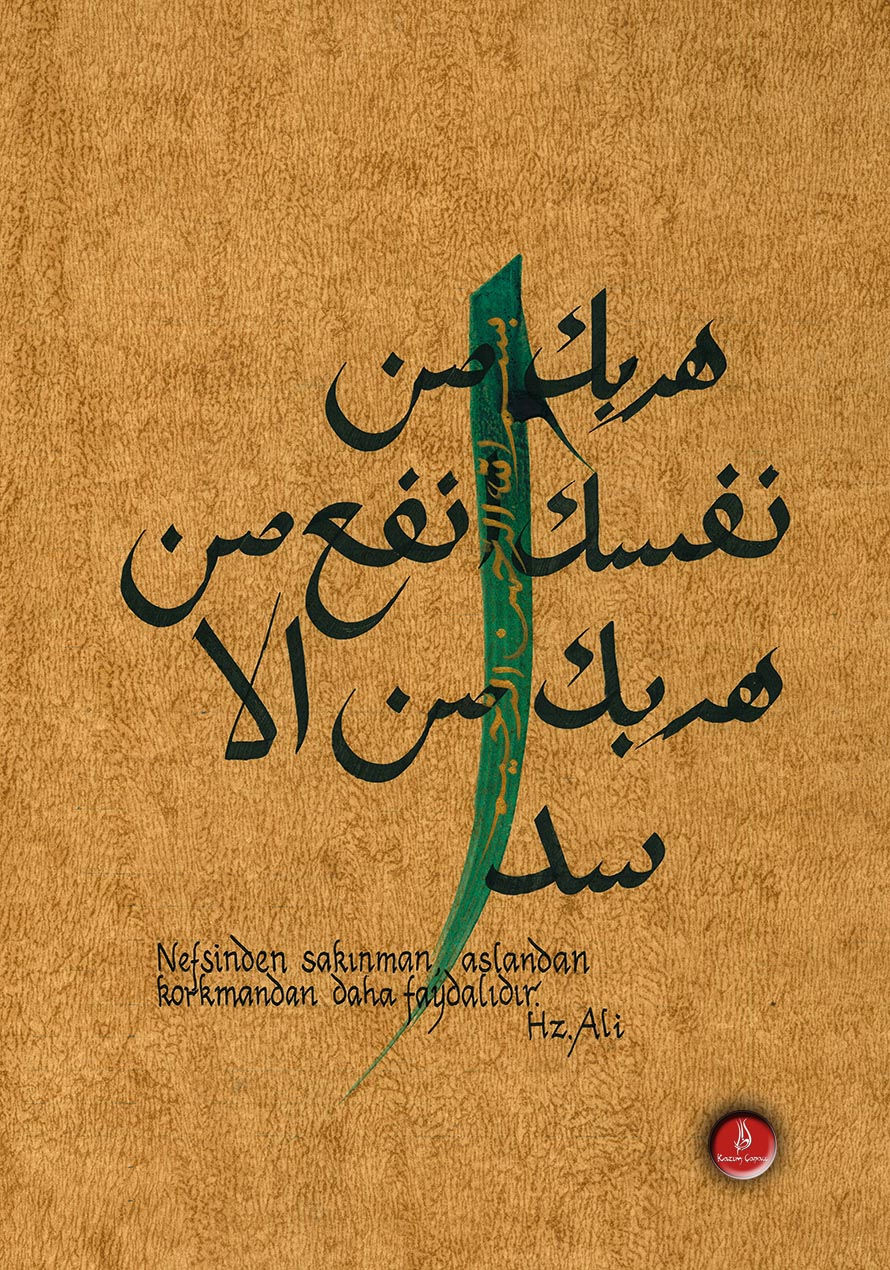 هربك من
نفسك انفع من
هربك من الا
سد
بسم الله الرحمن الرحيم
Nefsinden sakınman, aslandan
korkmandan daha faydalıdır.
Hz. Ali
Kazım Çapacı